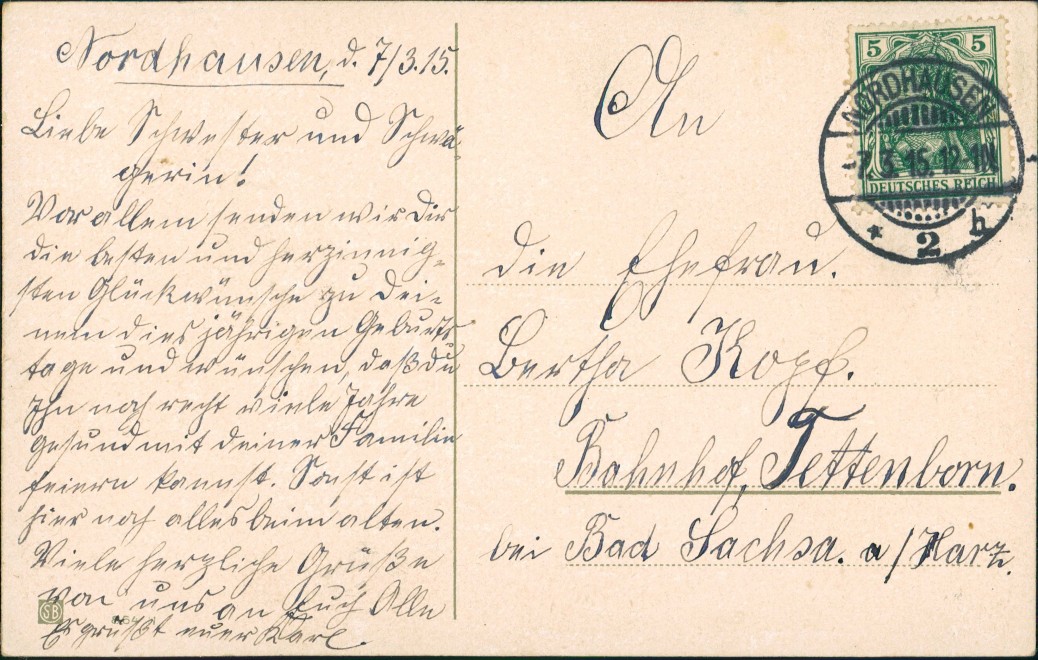 Nordhausen, d. 7/3.15.
Liebe Schwester und Schwä-
gerin!
Vor allem senden wir Dir
die besten und herzinnig-
sten Glückwünsche zu Dei-
nem diesjährigen Geburts
tage und wünschen, daß du
Ihn noch recht viele Jahre
gesund mit deiner Familie
feiern kannst. Sonst ist
hier noch alles beim alten.
Viele herzliche Grüße
von uns an Euch Alle
Es grüßt euer Karl.
SB
An
die Ehefrau.
Bertha Kopf.
Bahnhof, Tettenborn.
bei Bad Sachsa. a/Harz.
5 5
DEUTSCHES REICH
NORDHAUSEN
-7.3.15.12-1N
* 2 h